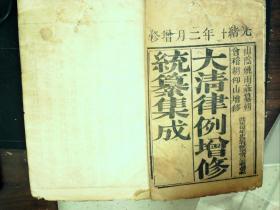 光緒十年二月增修
山陰姚雨薌纂輯
會稽胡仰山增修
大清律例增修
統纂集成